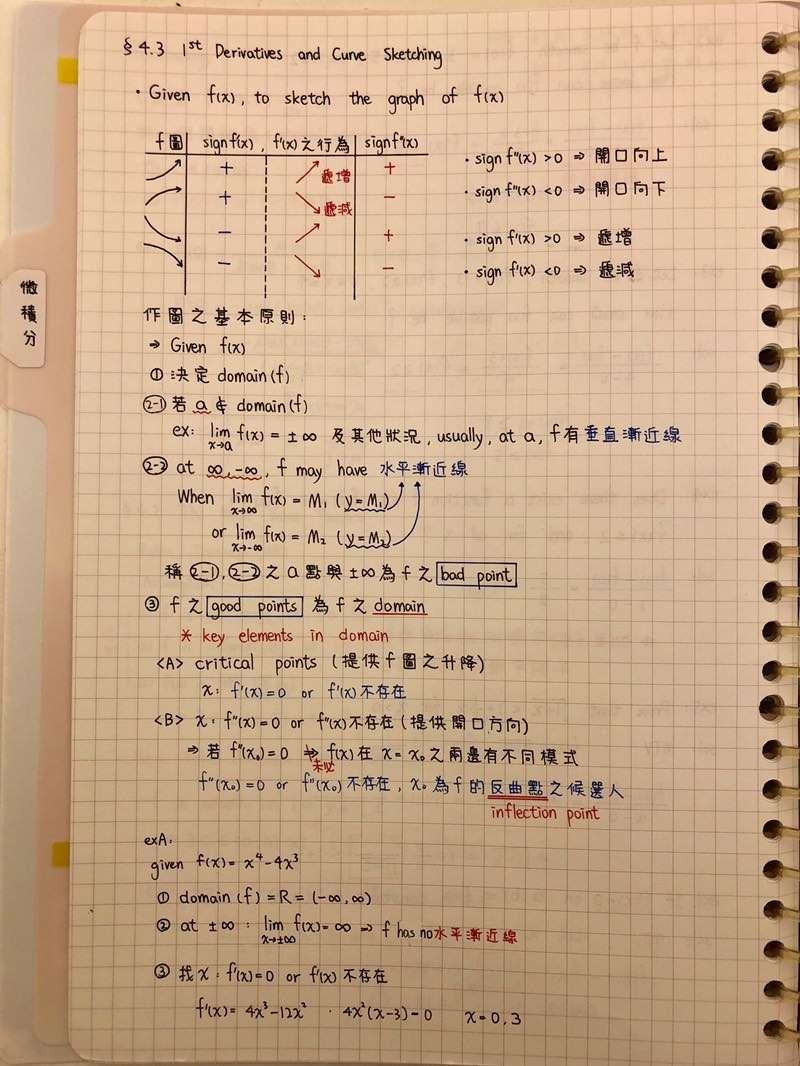 § 4.3 1st Derivatives and Curve Sketching
• Given f(x), to sketch the graph of f(x)
f圖 sign f(x), f'(x)之行為 sign f"(x)
+ 遞增 +
+ 遞減 −
− +
− −
• sign f"(x) >0 ⇒ 開口向上
• sign f"(x) <0 ⇒ 開口向下
• sign f'(x) >0 ⇒ 遞增
• sign f'(x) <0 ⇒ 遞減
微積分
作圖之基本原則:
⇒ Given f(x)
① 決定 domain(f)
2-1 若 a ∉ domain(f)
ex: lim x→a f(x) = ±∞ 及其他狀況, usually, at a, f有垂直漸近線
2-2 at ∞, -∞, f may have 水平漸近線
When lim x→∞ f(x) = M₁ (y=M₁)
or lim x→-∞ f(x) = M₂ (y=M₂)
稱 2-1, 2-2 之 a 點與 ±∞ 為 f 之 bad point
③ f 之 good points 為 f 之 domain
* key elements in domain
<A> critical points (提供 f 圖之升降)
x: f'(x)=0 or f'(x)不存在
<B> x: f"(x)=0 or f"(x)不存在(提供開口方向)
⇒ 若 f"(x₀)=0 ⇏ f(x)在 x=x₀之兩邊有不同模式
未必
f"(x₀)=0 or f"(x₀)不存在, x₀為f的反曲點之候選人
inflection point
exA:
given f(x)= x⁴-4x³
① domain (f) = R = (-∞,∞)
② at ±∞ : lim x→±∞ f(x)=∞ ⇒ f has no水平漸近線
③ 找 x: f'(x)=0 or f'(x) 不存在
f'(x)= 4x³-12x² · 4x²(x-3)=0 x=0,3